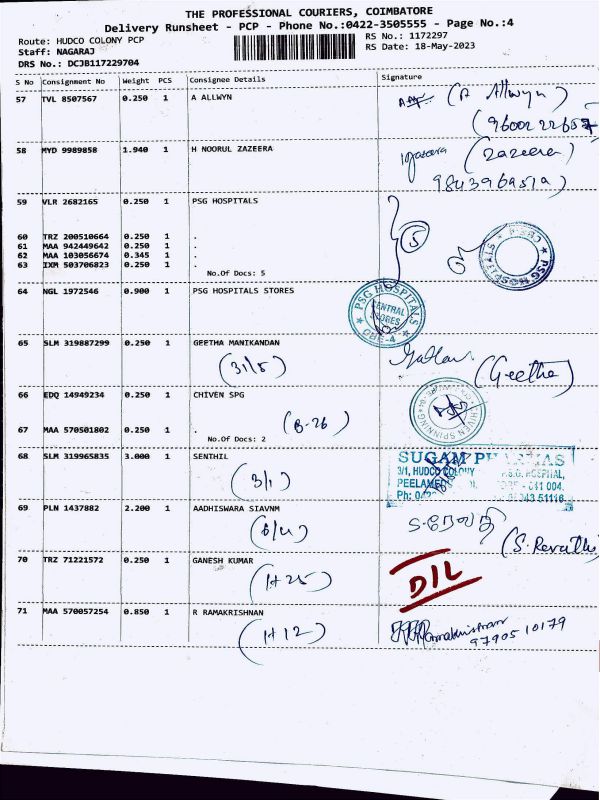 THE PROFESSIONAL COURIERS, COIMBATORE
Delivery Runsheet - PCP - Phone No.:0422-3505555 - Page No.:4
Route: HUDCO COLONY PCP
RS No.: 1172297
Staff: NAGARAJ
RS Date: 18-May-2023
DRS No.: DCJB117229704
S No Consignment No Weight PCS Consignee Details Signature
57 TVL 8507567 0.250 1 A ALLWYN
(A Allwyn)
58 MYD 9989858 1.940 1 H NOORUL ZAZEERA
(zazeera)
59 VLR 2682165 0.250 1 PSG HOSPITALS
60 TRZ 200510664 0.250 1 .
61 MAA 942449642 0.250 1 .
62 MAA 103056674 0.345 1 .
63 IXM 503706823 0.250 1 .
No.Of Docs: 5
5
PSG HOSPITALS
64 NGL 1972546 0.900 1 PSG HOSPITALS STORES
PSG HOSPITALS
CENTRAL
STORES
CBE-4
65 SLM 319887299 0.250 1 GEETHA MANIKANDAN
(31/5)
(Geetha)
66 EDQ 14949234 0.250 1 CHIVEN SPG
(B-26)
67 MAA 570501802 0.250 1 .
No.Of Docs: 2
68 SLM 319965835 3.000 1 SENTHIL
(3/1)
SUGAM
3/1, HUDCO COLONY P.S.G. HOSPITAL,
69 PLN 1437882 2.200 1 AADHISWARA SIAVNM
(S. Revathi)
70 TRZ 71221572 0.250 1 GANESH KUMAR
(H25)
D/L
71 MAA 570057254 0.850 1 R RAMAKRISHNAN
(H12)
97905 10179